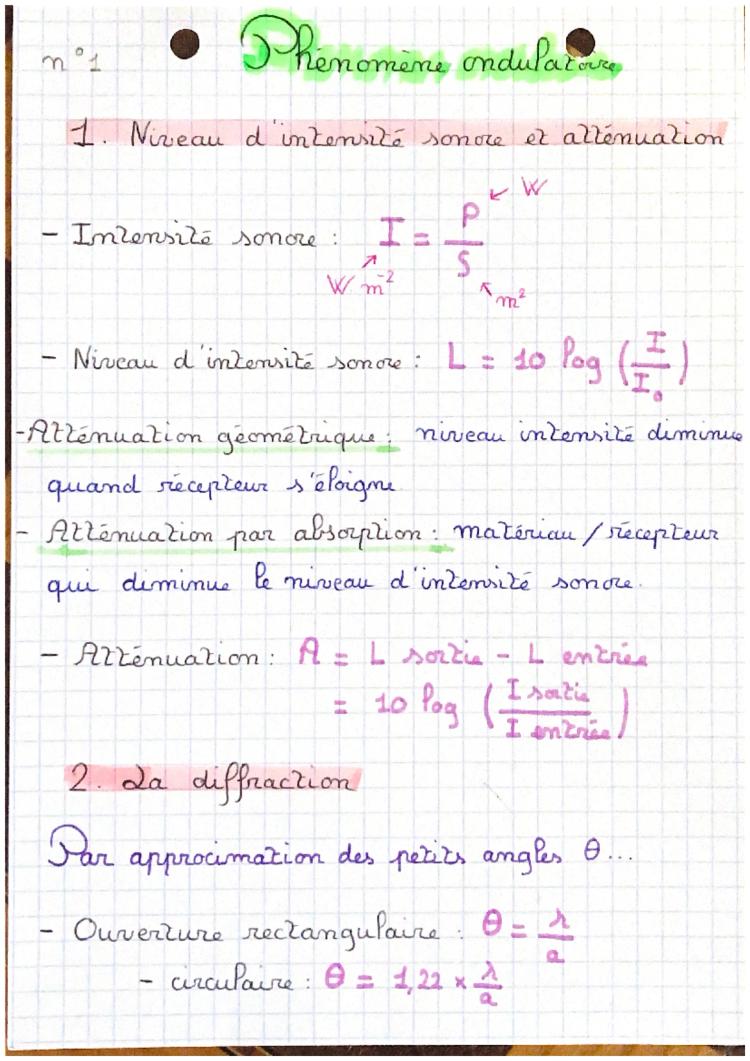 n°1
Phénomène ondulatoire
1. Niveau d'intensité sonore et atténuation
- Intensité sonore : I = P/S
W
W m⁻²
m²
- Niveau d'intensité sonore : L = 10 log (I/I₀)
- Atténuation géométrique : niveau intensité diminue
quand récepteur s'éloigne
- Atténuation par absorption : matériau / récepteur
qui diminue le niveau d'intensité sonore.
- Atténuation : A = L sortie - L entrée
= 10 log (I sortie/I entrée)
2. La diffraction
Par approximation des petits angles θ...
- Ouverture rectangulaire : θ = λ/a
- circulaire : θ = 1,22 × λ/a